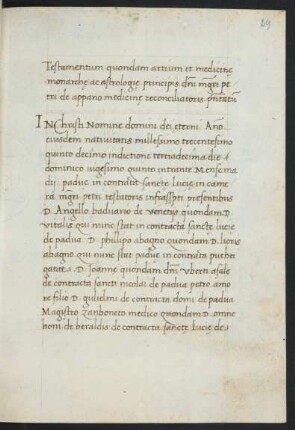 29
Testamentum quondam artium et medicine
monarche ac astrologie principis dñi mgri pe
tri de appano medicine reconciliatoris
IN Christi Nomine domini dei eterni Año
eiusdem nativitatis millessimo trecentesimo
quinto decimo indictione terciadecima die
dominico vigesimo quinto intrante Mense ma
dij padue in contrata sancte lucie in came
ra mgri petri testatoris presentibus
D. Angello baduario de venetijs quondam D.
vitalis qui nunc stat in contracta sancte lucie
de padua D. phillipo abagno quondam D.
abagno qui nunc stat padue in contrata puthei
D. Joanne quondam dñi uberti
de contracta sancti nicolai de padua petro amo
re filio D. gulielmi de contracta domi de padua
Magistro zanboneto medico quondam D. omne
boni de de contracta sancte lucie de